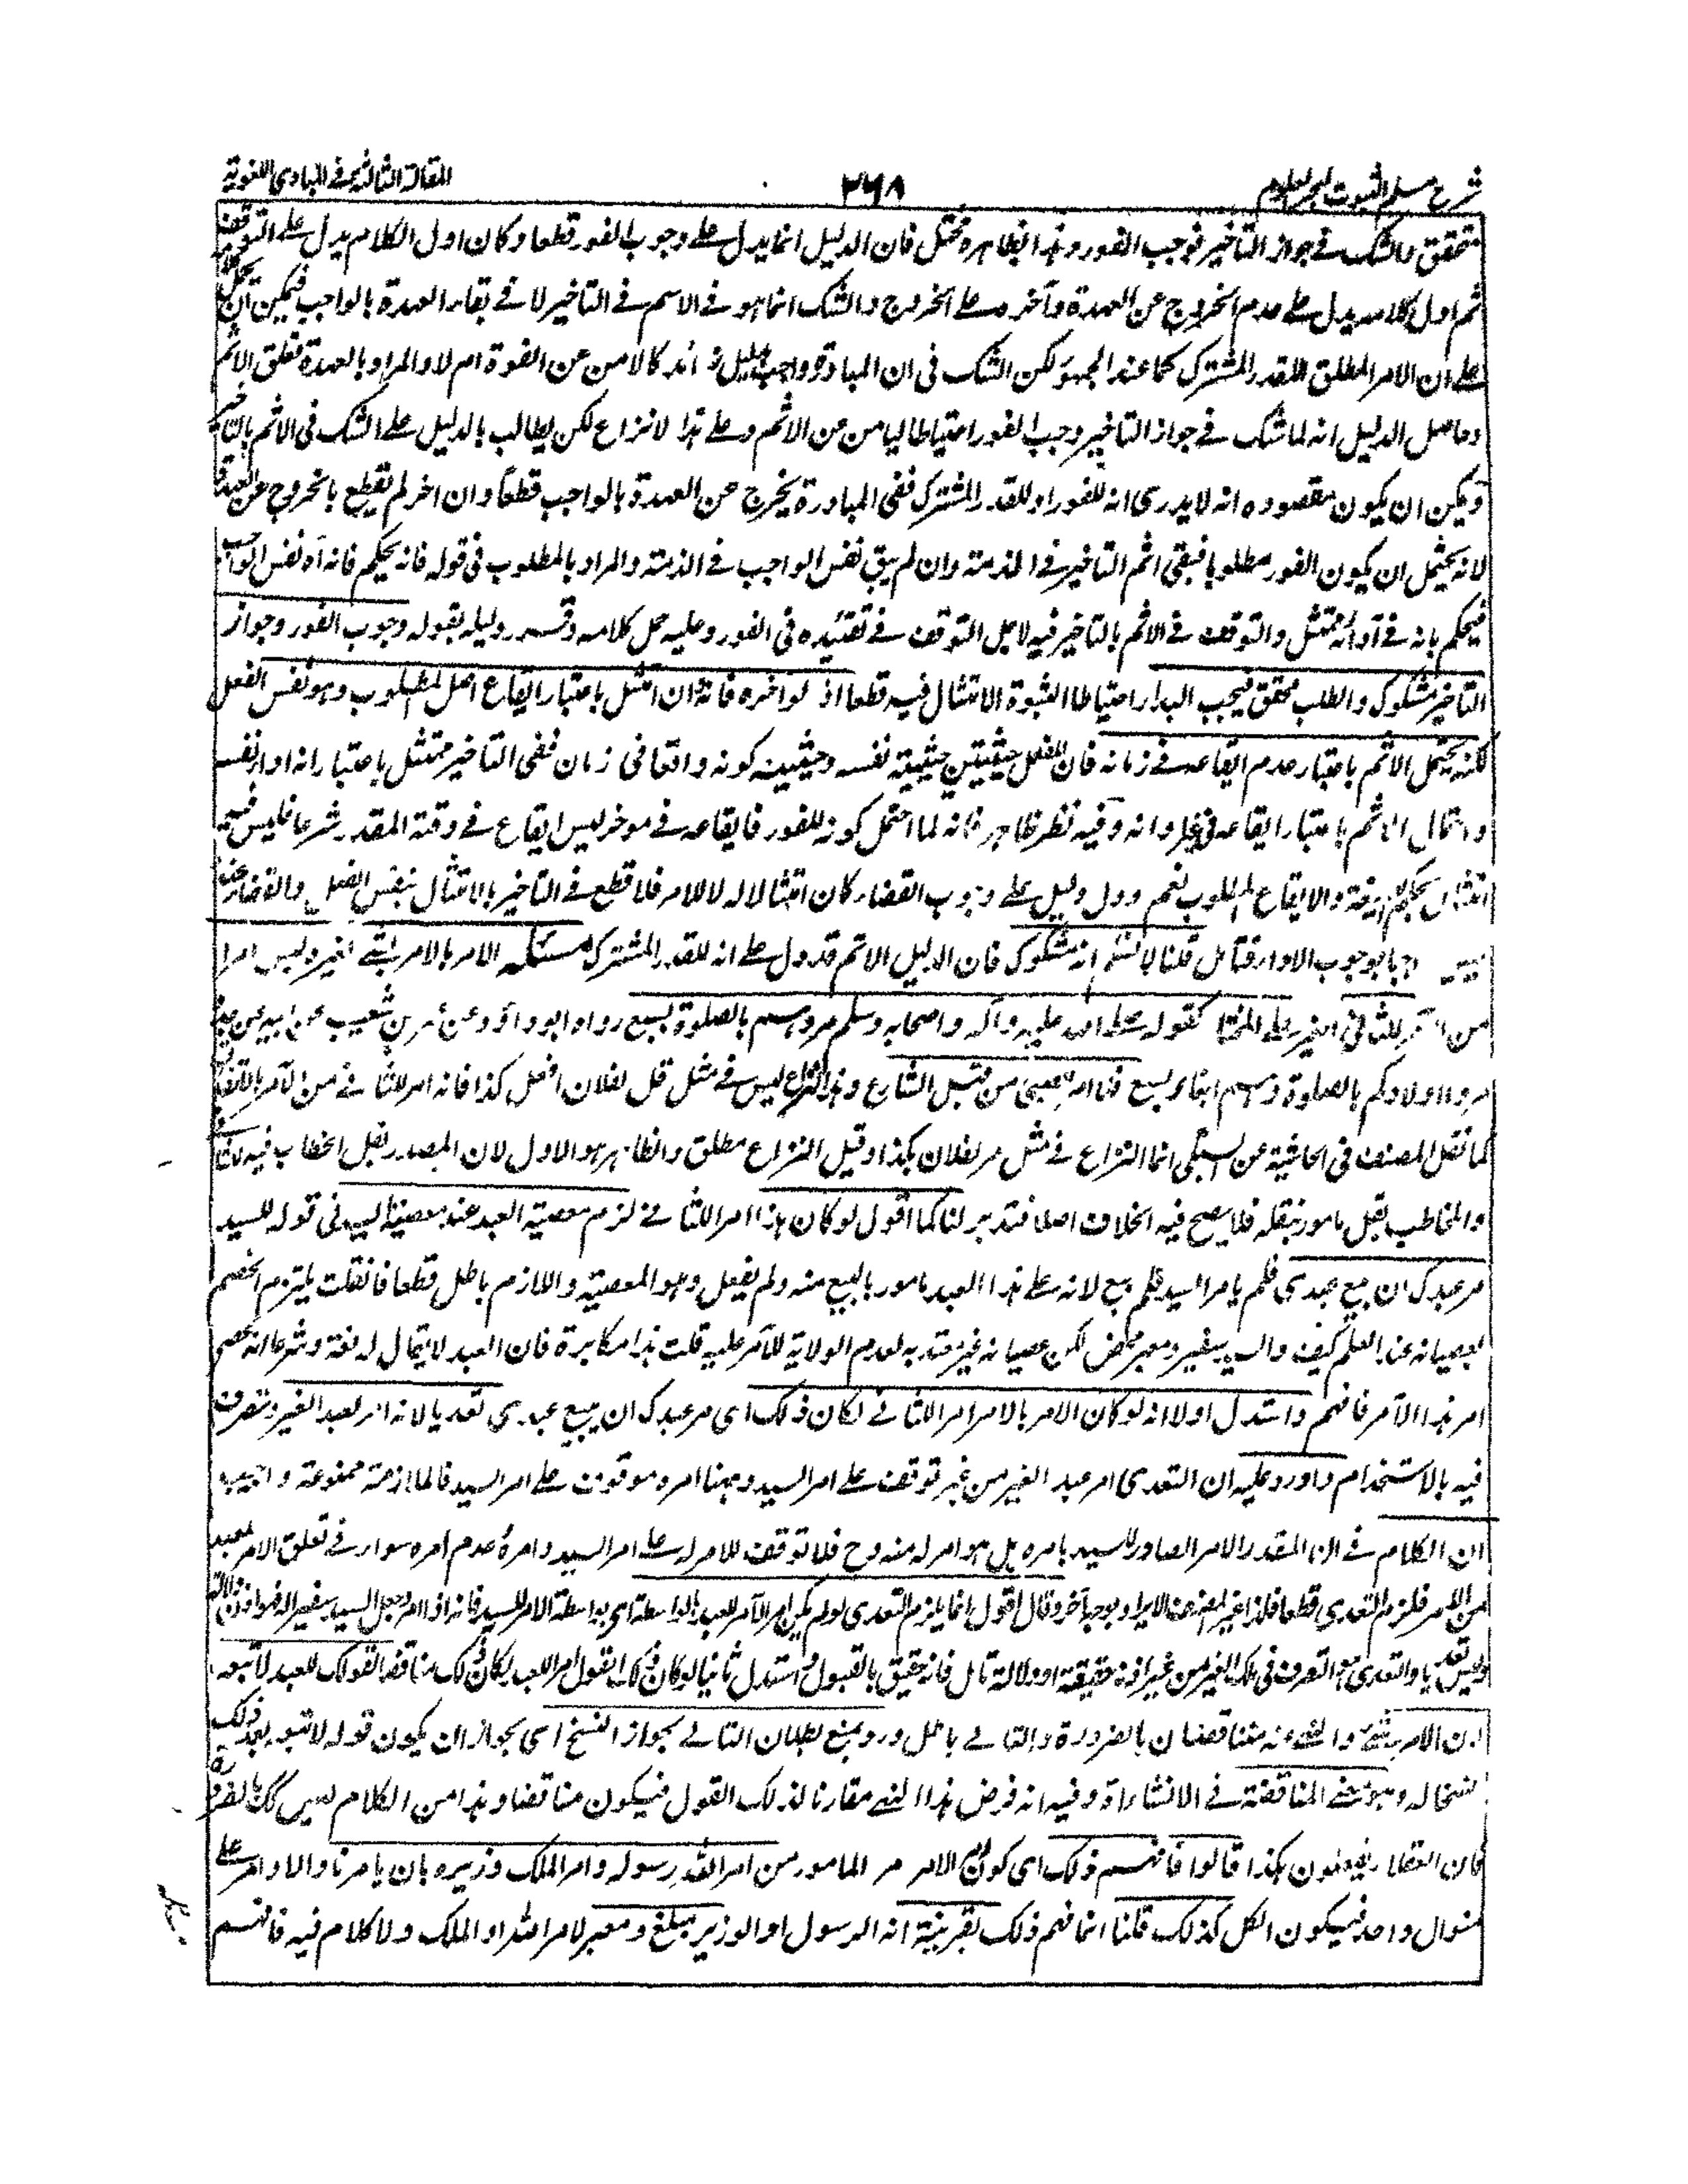 شرح مسلم الثبوت لبحر العلوم
٢٦٨
المقالة الثالثة في المبادى اللغوية
متحقق والشك في جواز التأخير فوجب الفور وهذا بظاهره مختل فان الدليل انما يدل على وجوب الفور قطعا وكان اول الكلام يدل على التوقف
ثم اول كلامه يدل على عدم الخروج عن العهدة وآخره على الخروج والشك انما هو في الاثم في التاخير لا في بقاء العهدة بالواجب فيمكن ان يحمل
على ان الامر المطلق للقدر المشترك كما عند الجمهور لكن الشك فى ان المبادرة واجب لدليل أنه كالامن عن الفوة ام لا والمراد بالعهدة تعلق الاثم
وحاصل الدليل انه لما شك في جواز التأخير وجب الفور احتياطا ليامن من الاثم وعلى هذا لا نزاع لكن يطالب بالدليل على الشك فى الاثم بالتاخير
ويمكن ان يكون مقصوده انه لا يدرى انه للفور او للقدر المشترك ففى المبادرة يخرج عن العهدة بالواجب قطعا وان اخر لم يقطع بالخروج عن العهدة
لانه يحتمل ان يكون الفور مطلوبا فيبقى اثم التاخير في الذمة وان لم يبق نفس الواجب في الذمة والمراد بالمطلوب فى قوله فانه يحكم فانه اه نفس الواجب
فيحكم بانه في آدائه ممتثل والتوقف في الاثم بالتاخير فيه لاجل التوقف في تقييده فى الفور وعليه حمل كلامه وقرر دليله بقوله وجوب الفور وجواز
التاخير مشكوك والطلب محقق فيجب البدار احتياطا لثبوة الامتثال فيه قطعا اذ لو اخره فانه وان امتثل باعتبار ايقاع اصل المطلوب وهو نفس الفعل
لكنه يحتمل الاثم باعتبار عدم ايقاعه في زمانه فان للفعل حيثيتين حيثية نفسه وحيثية كونه واقعا فى زمان ففى التاخير ممتثل باعتبار انه اداء نفسه
واحتمال الاثم باعتبار ايقاعه فى غير اوانه وفيه نظر ظاهر فانه لما احتمل كونه للفور فايقاعه في موخر ليس ايقاع في وقته المقدر شرعا فليس فيه
امتثال بحكم الصيغة والايقاع المطلوب نعم لو دل دليل على وجوب القضاء كان امتثالا له لا للامر فلا قطع في التاخير بالامتثال بنفس الفعل والقضاء عنه
ليس واجبا بوجوب الاداء فتأمل قلنا لا نسلم انه مشكوك فان الدليل الاتم قد دل على انه للقدر المشترك مسئلة الامر بالامر بشئ لغير وليس امرا
من الآمر للثانى الغير على المختار كقوله صلى الله عليه وآله واصحابه وسلم مروهم بالصلوة لسبع رواه ابو داؤد وعن عمرو بن شعيب عن ابيه عن جده
مروا اولادكم بالصلوة وهم ابناء سبع من قبل الشارع وهذا النزاع ليس في مثل قل لفلان افعل كذا فانه امر للثاني من الآمر بالاتفاق
كما نقل المصنف فى الحاشية عن السبكى انما النزاع في مثل مر لفلان بكذا وقيل النزاع مطلق والظاهر هو الاول لان المصدر بقل الخطاب فيه للثاني
والمخاطب بقل مامور بنقله فلا يصح فيه الخلاف اصلا فتدبر لنا كما اقول لو كان هذا امرا للثاني لزم معصية العبد عند معصية السيد فى قوله للسيد
مر عبدك ان يبيع عبدى فلم يامر السيد فلم يبع لانه على هذا العبد مامور بالبيع منه ولم يفعل وهو المعصية واللازم باطل قطعا فان قلت يلتزم الخصم
بعصيانه عند العلم كيف والسيد سفير ومعبر محض لكن عصيانه غير معتد به لعدم الولاية للآمر عليه قلت هذا مكابرة فان العبد لا يقال له لغة وشرعا انه عصى
امر هذا الآمر فافهم واستدل اولا انه لو كان الامر بالامر امرا للثاني لكان ذلك اى مر عبدك ان يبيع عبدى تعديا لانه امر لعبد الغير وتصرف
فيه بالاستخدام واورد عليه ان التعدى امر عبد الغير من غير توقف على امر السيد وههنا امره موقوف على امر السيد فالملازمة ممنوعة واجيب
ان الكلام في ان المقدر الامر الصادر للسيد بامره بل هو امر له مندوح فلا توقف للامر له على امر السيد وامره وعدم امره سواء في تعلق الامر لعبد
من الآمر فلزم التعدى قطعا فلذا غير المصنف هذا الايراد بوجه آخر وقال اقول انما يلزم التعدى لو لم يكن امر الآمر للعبد بالواسطة اى بواسطة الامر للسيد فانه اذا امر وجعل السيد سفيرا له فهو اذن دلالة
وليس تعديا والتعدى هو التصرف فى ملك الغير من غير اذنه حقيقة او دلالة تأمل فانه حقيق بالقبول واستدل ثانيا لو كان ذلك اى قول امر للعبد لكان ذلك مناقضا لقولك للعبد لا تبعه
لان الامر بشئ والنهى عنه متناقضان بالضرورة والتالي باطل ورد بمنع بطلان التالي بجواز النسخ اى بجواز ان يكون قوله لا تبعه بعد ذلك
نسخا له وهو معنى المناقضة في الانشاء اه وفيه انه فرض هذا النهى مقارنا لذلك القول فيكون مناقضا وهذا من الكلام ليس كك بالضرورة
فان العقلاء يفعلون هكذا قالوا فهم ذلك اى كون الآمر امر المامور من امر الله رسوله وامر الملك وزيره بان يامرنا والاوامر على
منوال واحد فيكون الكل كذلك قلنا انما فهم ذلك بقرينة انه الرسول او الوزير مبلغ ومعبر لامر الله او الملك ولا كلام فيه فافهم